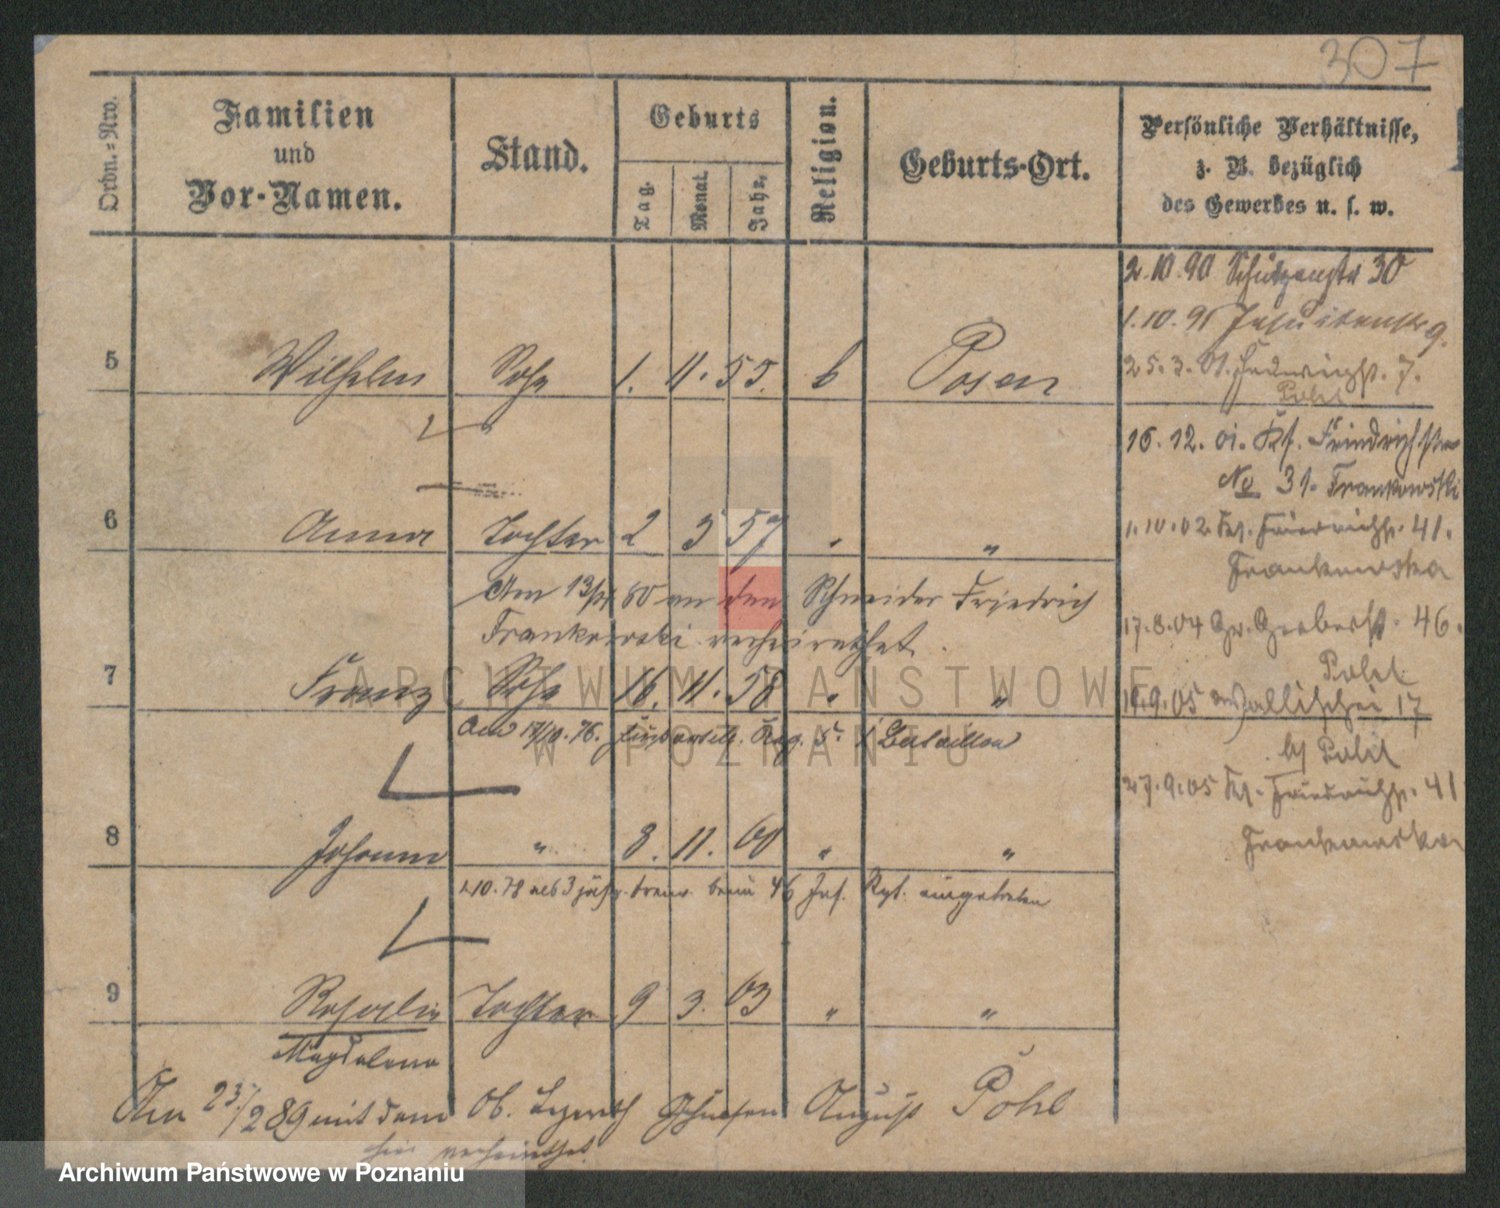 307
Ordn.=Nro.
Familien
und
Vor-Namen.
Stand.
Geburts
Tag.
Monat.
Jahr.
Religion.
Geburts-Ort.
Persönliche Verhältnisse,
z. B. bezüglich
des Gewerbes u. s. w.
2.10.90 Schützenstr 30
1.10.91 Jesuitenstr 9.
25.3.01. Hedwigst. 7.
Pohl
5 Wilhelm Sohn 1. 11. 55. Posen
16.12.01. Kl. Friedrichstr
No 31. Frankowski
6 Anna Tochter 2 3 57 " "
1.10.02 Kl. Friedrichst. 41.
Frankowska
Am 13/ 80 an den Schneider Friedrich
Frankowski verheirathet.
17.8.04 Gr. Gerberst. 46.
Pohl
7 Franz Sohn 16. 11. 58 " "
19.9.05 Wallischei 17
b/ Pohl
Am 14/10.76. Bataillon
27.9.05 Kl. Friedrichst. 41
Frankowska
8 Johann " 8. 11. 60 " "
10.78 als 3 jähr. beim 46 Inf. Rgt. eingetreten
9 Rosalie Tochter 9 3. 63 " "
Magdalena
Am 23/2 89 mit dem August Pohl
hier verheirathet.
ARCHIWUM PAŃSTWOWE
W POZNANIU
Archiwum Państwowe w Poznaniu